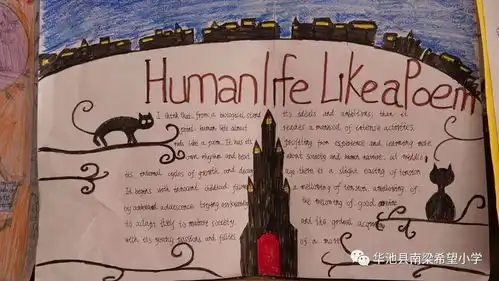 Human life Like a Poem
I think that, from a biological stand
point human life almost
reads like a poem. It has its
own rhythm and beat
its internal cycles of growth and decay
It begins with innocent childhood followed
by awkward adolescence trying awkwardly
to adapt itself to mature society,
with its young passions and follies
its ideals and ambitions; then it
reaches a manhood of intense activities
profiting from experience and learning more
about society and human nature, at middle
age there is a slight easing of tension
a mellowing of
the ripening of good
and the gradual
of a more
华池县南梁希望小学